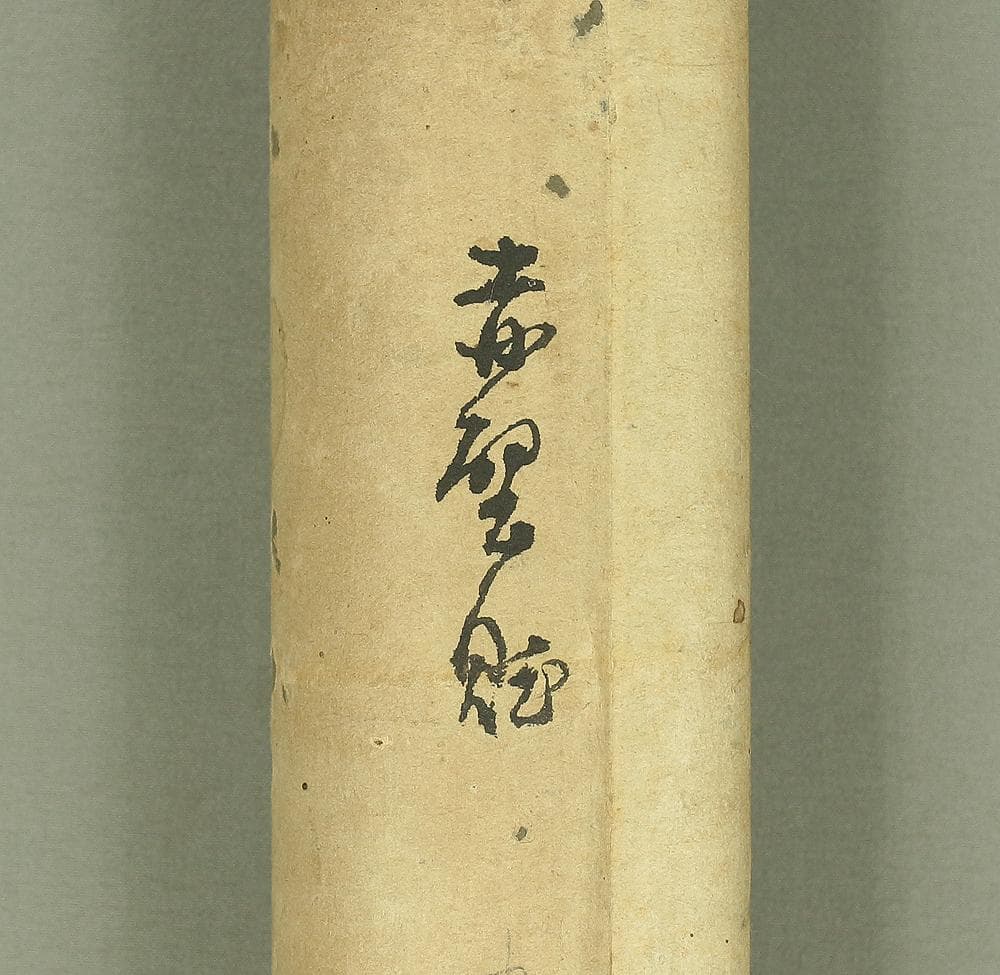 赤壁賦